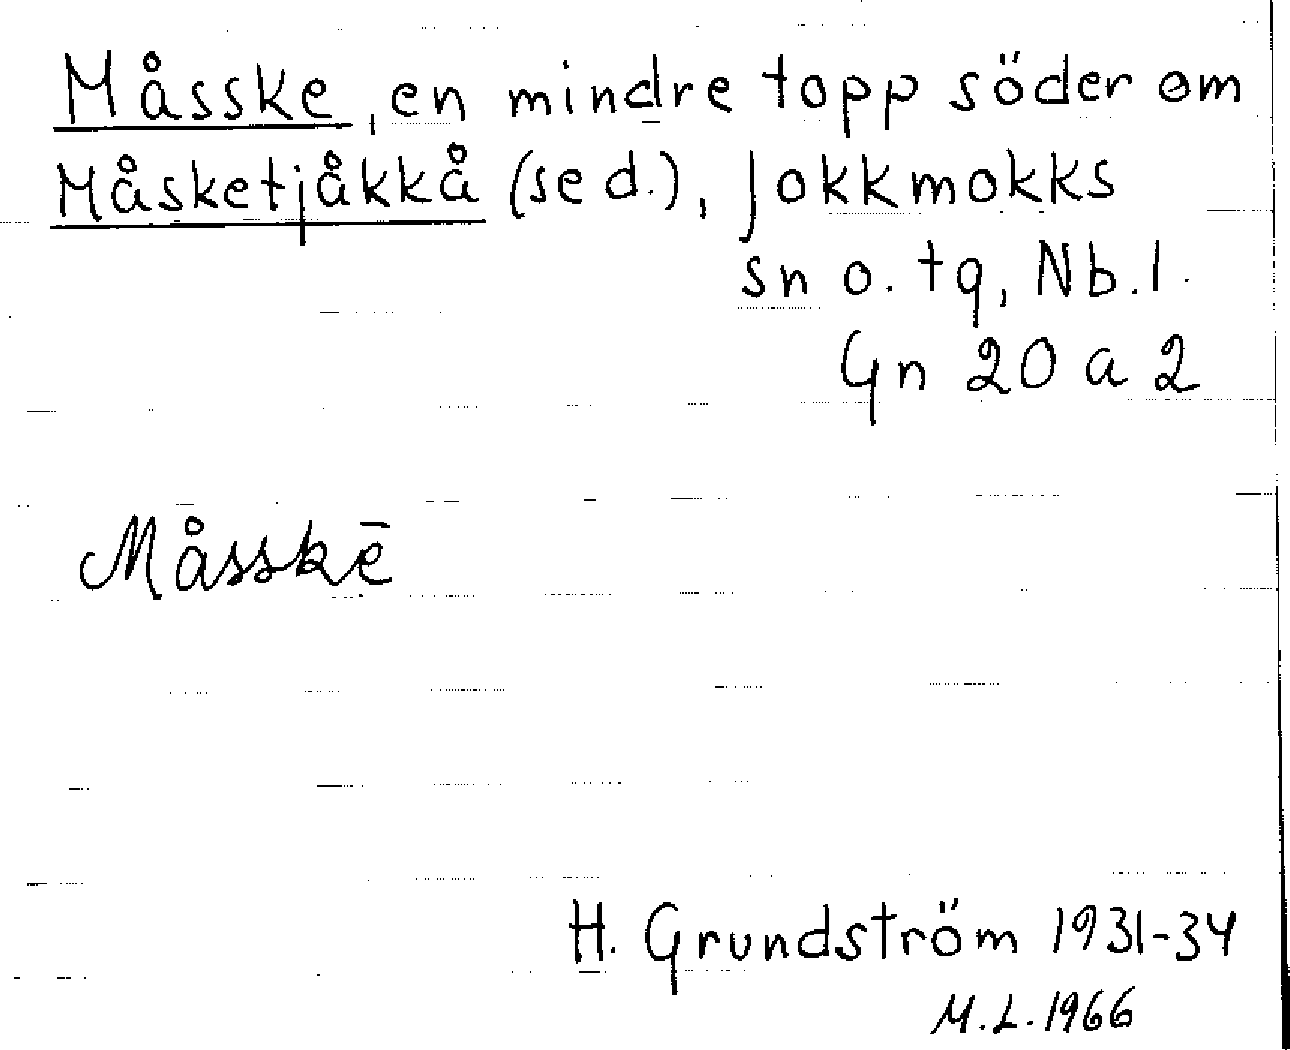 Måsske, en mindre topp söder om
Måsketjåkkå (se d.), Jokkmokks
sn o. tg, Nb. l.
Gn 20 a 2
Måsskē
H. Grundström 1931-34
M.L. 1966